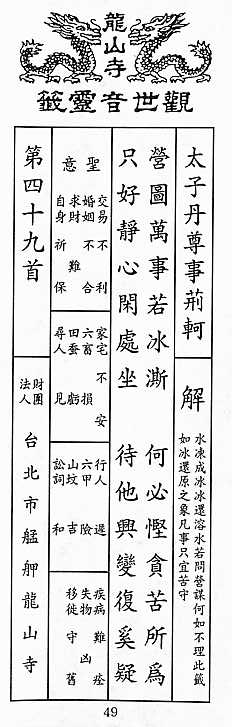 龍山寺
觀世音靈籤
太子丹尊事荊軻
解
水凍成冰冰還溶水若問營謀何如不理此籤
如冰還原之象凡事只宜苦守
營圖萬事若冰澌 何必慳貪苦所為
只好靜心閑處坐 待他興變復奚疑
聖意
交易 不利
婚姻 不合
求財 難
自身 祈保
家宅 不安
六畜 損
田蚕 虧
尋人 見
行人 遲
六甲 險
山坟 吉
訟詞 和
疾病 難痊
失物 凶
移徙 守舊
第四十九首
財團法人
台北市艋舺龍山寺
49